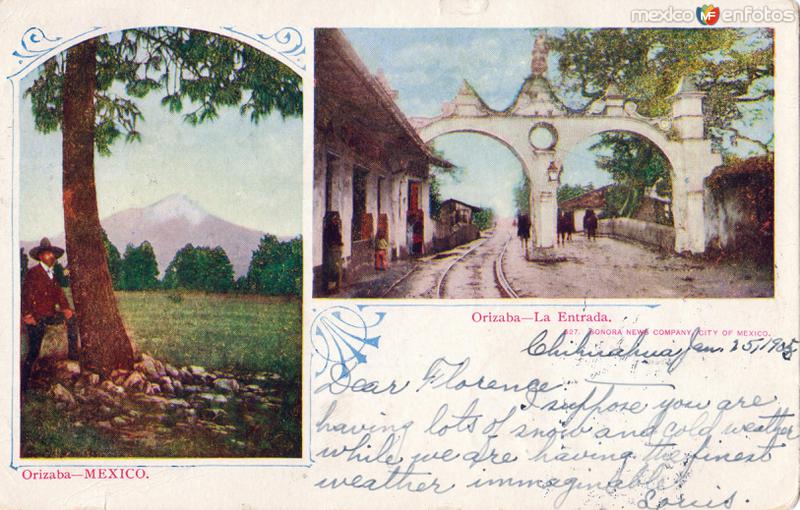 mexico enfotos
Orizaba—La Entrada.
527. SONORA NEWS COMPANY, CITY OF MEXICO.
Chihuahua, Jan. 25, 1905
Dear Florence
I suppose you are
having lots of snow and cold weather
while we are having the finest
weather immaginable.
Louis.
Orizaba—MEXICO.